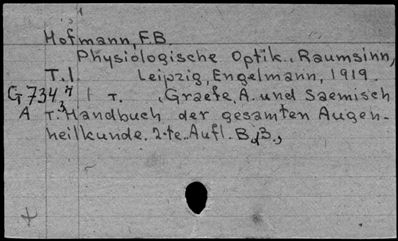 Hofmann, F.B.
Physiologische Optik., Raumsinn,
T. I Leipzig, Engelmann, 1919.
G 734 I T. , Graefe, A. und Saemisch
A T. 3. Handbuch der gesamten Augen-
heilkunde. 2.te. Aufl. Bd 3.,